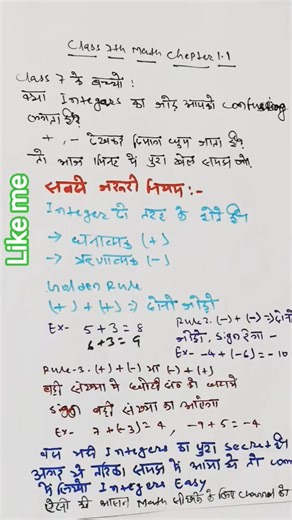 Class 7th Math Chapter 1.1
Class 7 के बच्चों!
क्या Integers का जोड़ आपको confusing
लगता है?
+, - देखकर दिमाग घूम जाता है?
तो आज मिनट में पूरा खेल समझ लो।
सबसे जरूरी नियम:-
Integer दो तरह के होते है
→ धनात्मक (+)
→ ऋणात्मक (-)
Golden Rule
(+) + (+) => दोनो जोड़ो
Ex- 5+3=8
6+3=9
Rule 2. (-) + (-) => दोनो
जोड़ो, sign रहेगा -
Ex- -4+(-6) = -10
Rule-3. (+) + (-) या (-) + (+)
बड़ी संख्या में छोटी संख्या
sign बड़ी संख्या का आएगा
Ex- 7+(-3)=4, -9+5=-4
बस यही Integers का पूरा secret है
अगर ये तरीका समझ में आया तो com
में लिखो Integers Easy
ऐसी ही आसान Math सीखने के लिए channel को
Like me